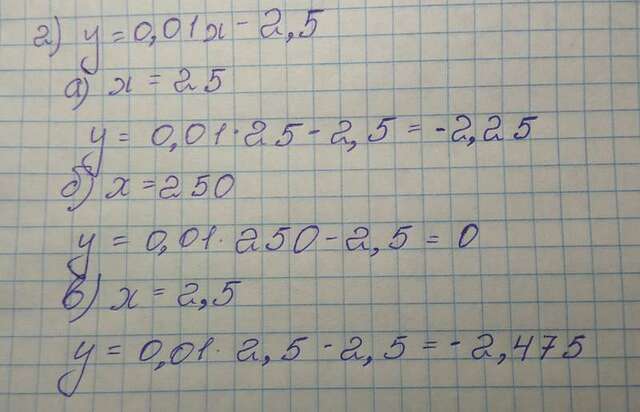 г) y = 0,01x - 2,5
а) x = 25
y = 0,01 · 25 - 2,5 = -2,25
б) x = 250
y = 0,01 · 250 - 2,5 = 0
в) x = 2,5
y = 0,01 · 2,5 - 2,5 = -2,475